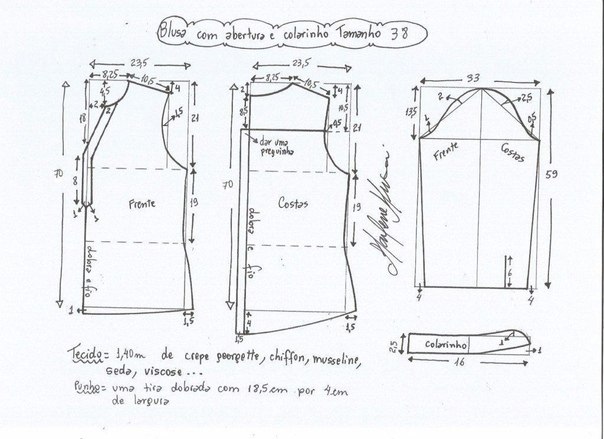 Blusa com abertura e colarinho Tamanho 38
23,5
8,25
10,5
4
4,5
2
2
1,5
18
21
70
8
1
1
Frente
19
dobra e fio
1
1,5
23,5
8,25
10,5
4
8,5
10,5
0,5
21
dar uma preguinha
70
Costas
19
dobra e fio
4
1,5
1,5
33
13,5
2
2,5
1
0,5
Frente
Costas
59
6
4
4
2,5
colarinho
1
1
16
Tecido = 1,40m de crepe georgette, chiffon, musseline,
seda, viscose...
Punho = uma tira dobrada com 18,5cm por 4cm
de largura